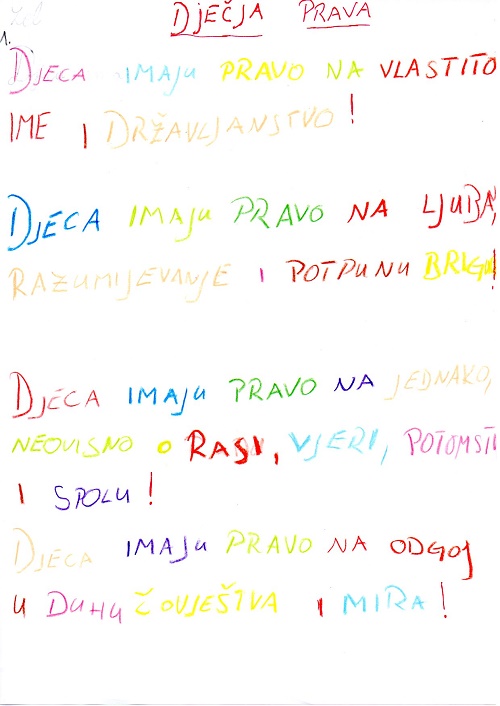 DJEČJA PRAVA
1.
DJECA IMAJU PRAVO NA VLASTITO
IME I DRŽAVLJANSTVO!
DJECA IMAJU PRAVO NA LJUBAV,
RAZUMIJEVANJE I POTPUNU BRIGU!
DJECA IMAJU PRAVO NA JEDNAKO,
NEOVISNO O RASI, VJERI, POTOMSTVU
I SPOLU!
DJECA IMAJU PRAVO NA ODGOJ
U DUHU ČOVJEŠTVA I MIRA!